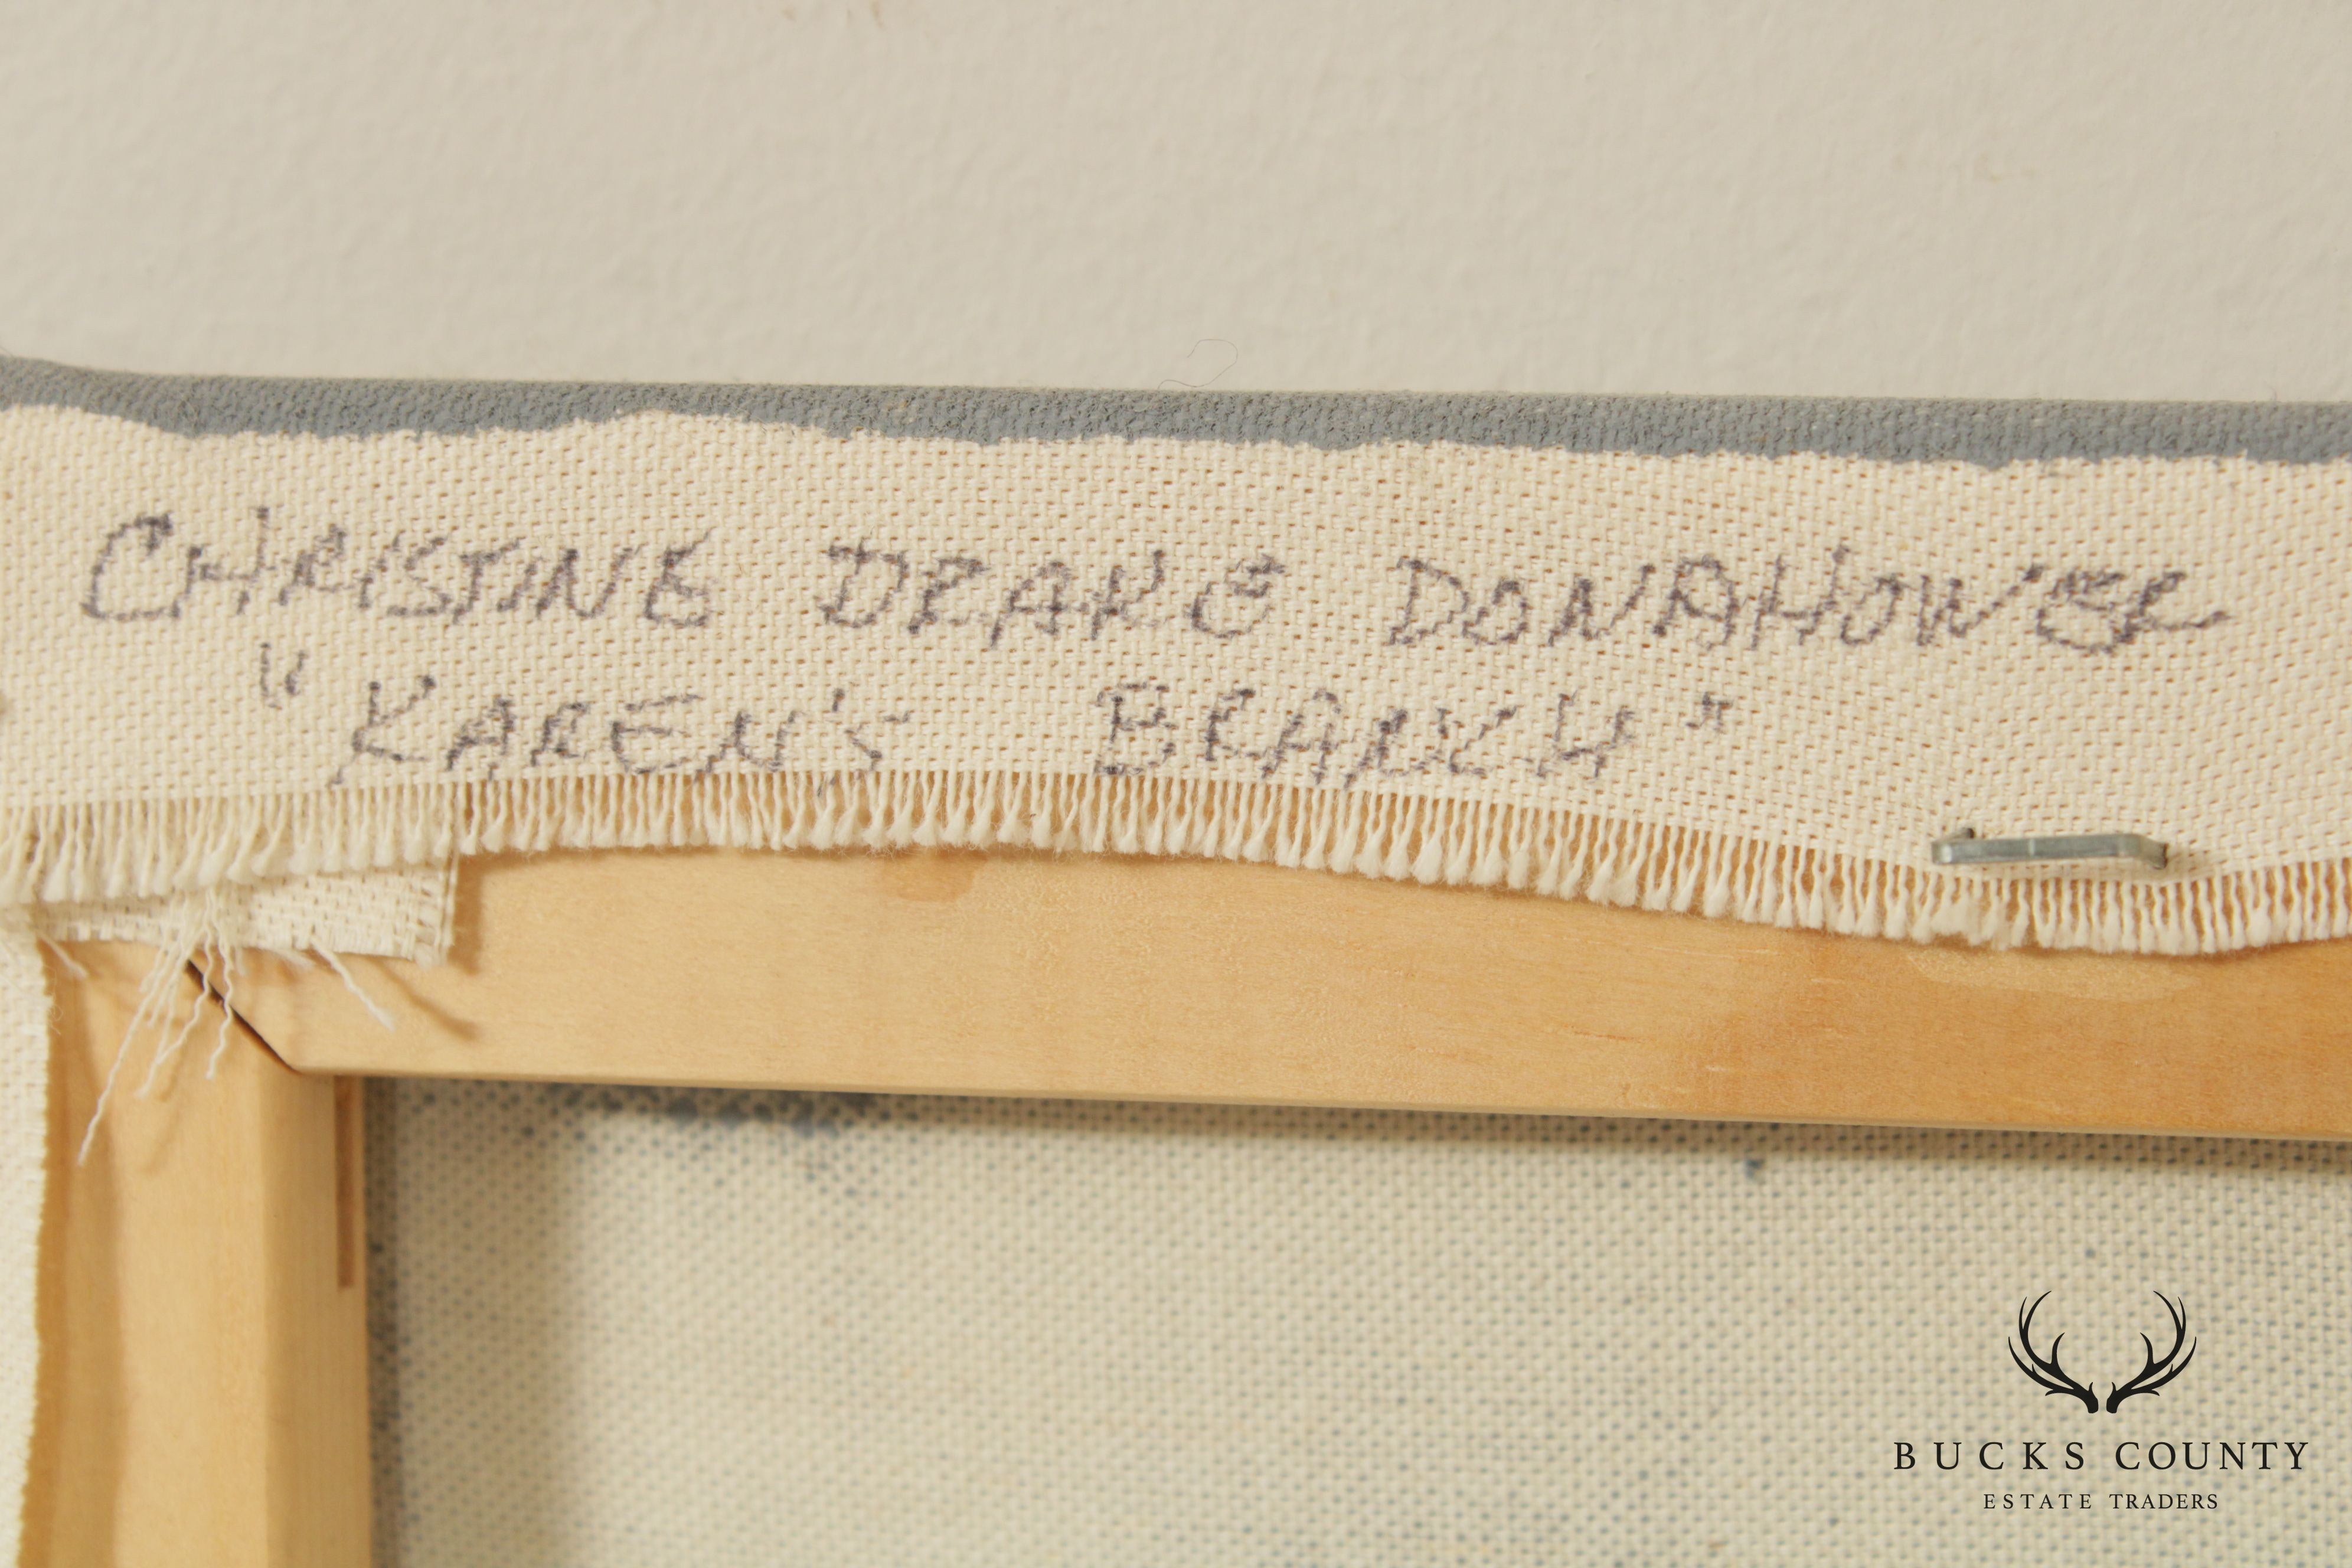 CHRISTINE DRAKE DONAHOWER
"KAREN'S BRANCH"
BUCKS COUNTY
ESTATE TRADERS